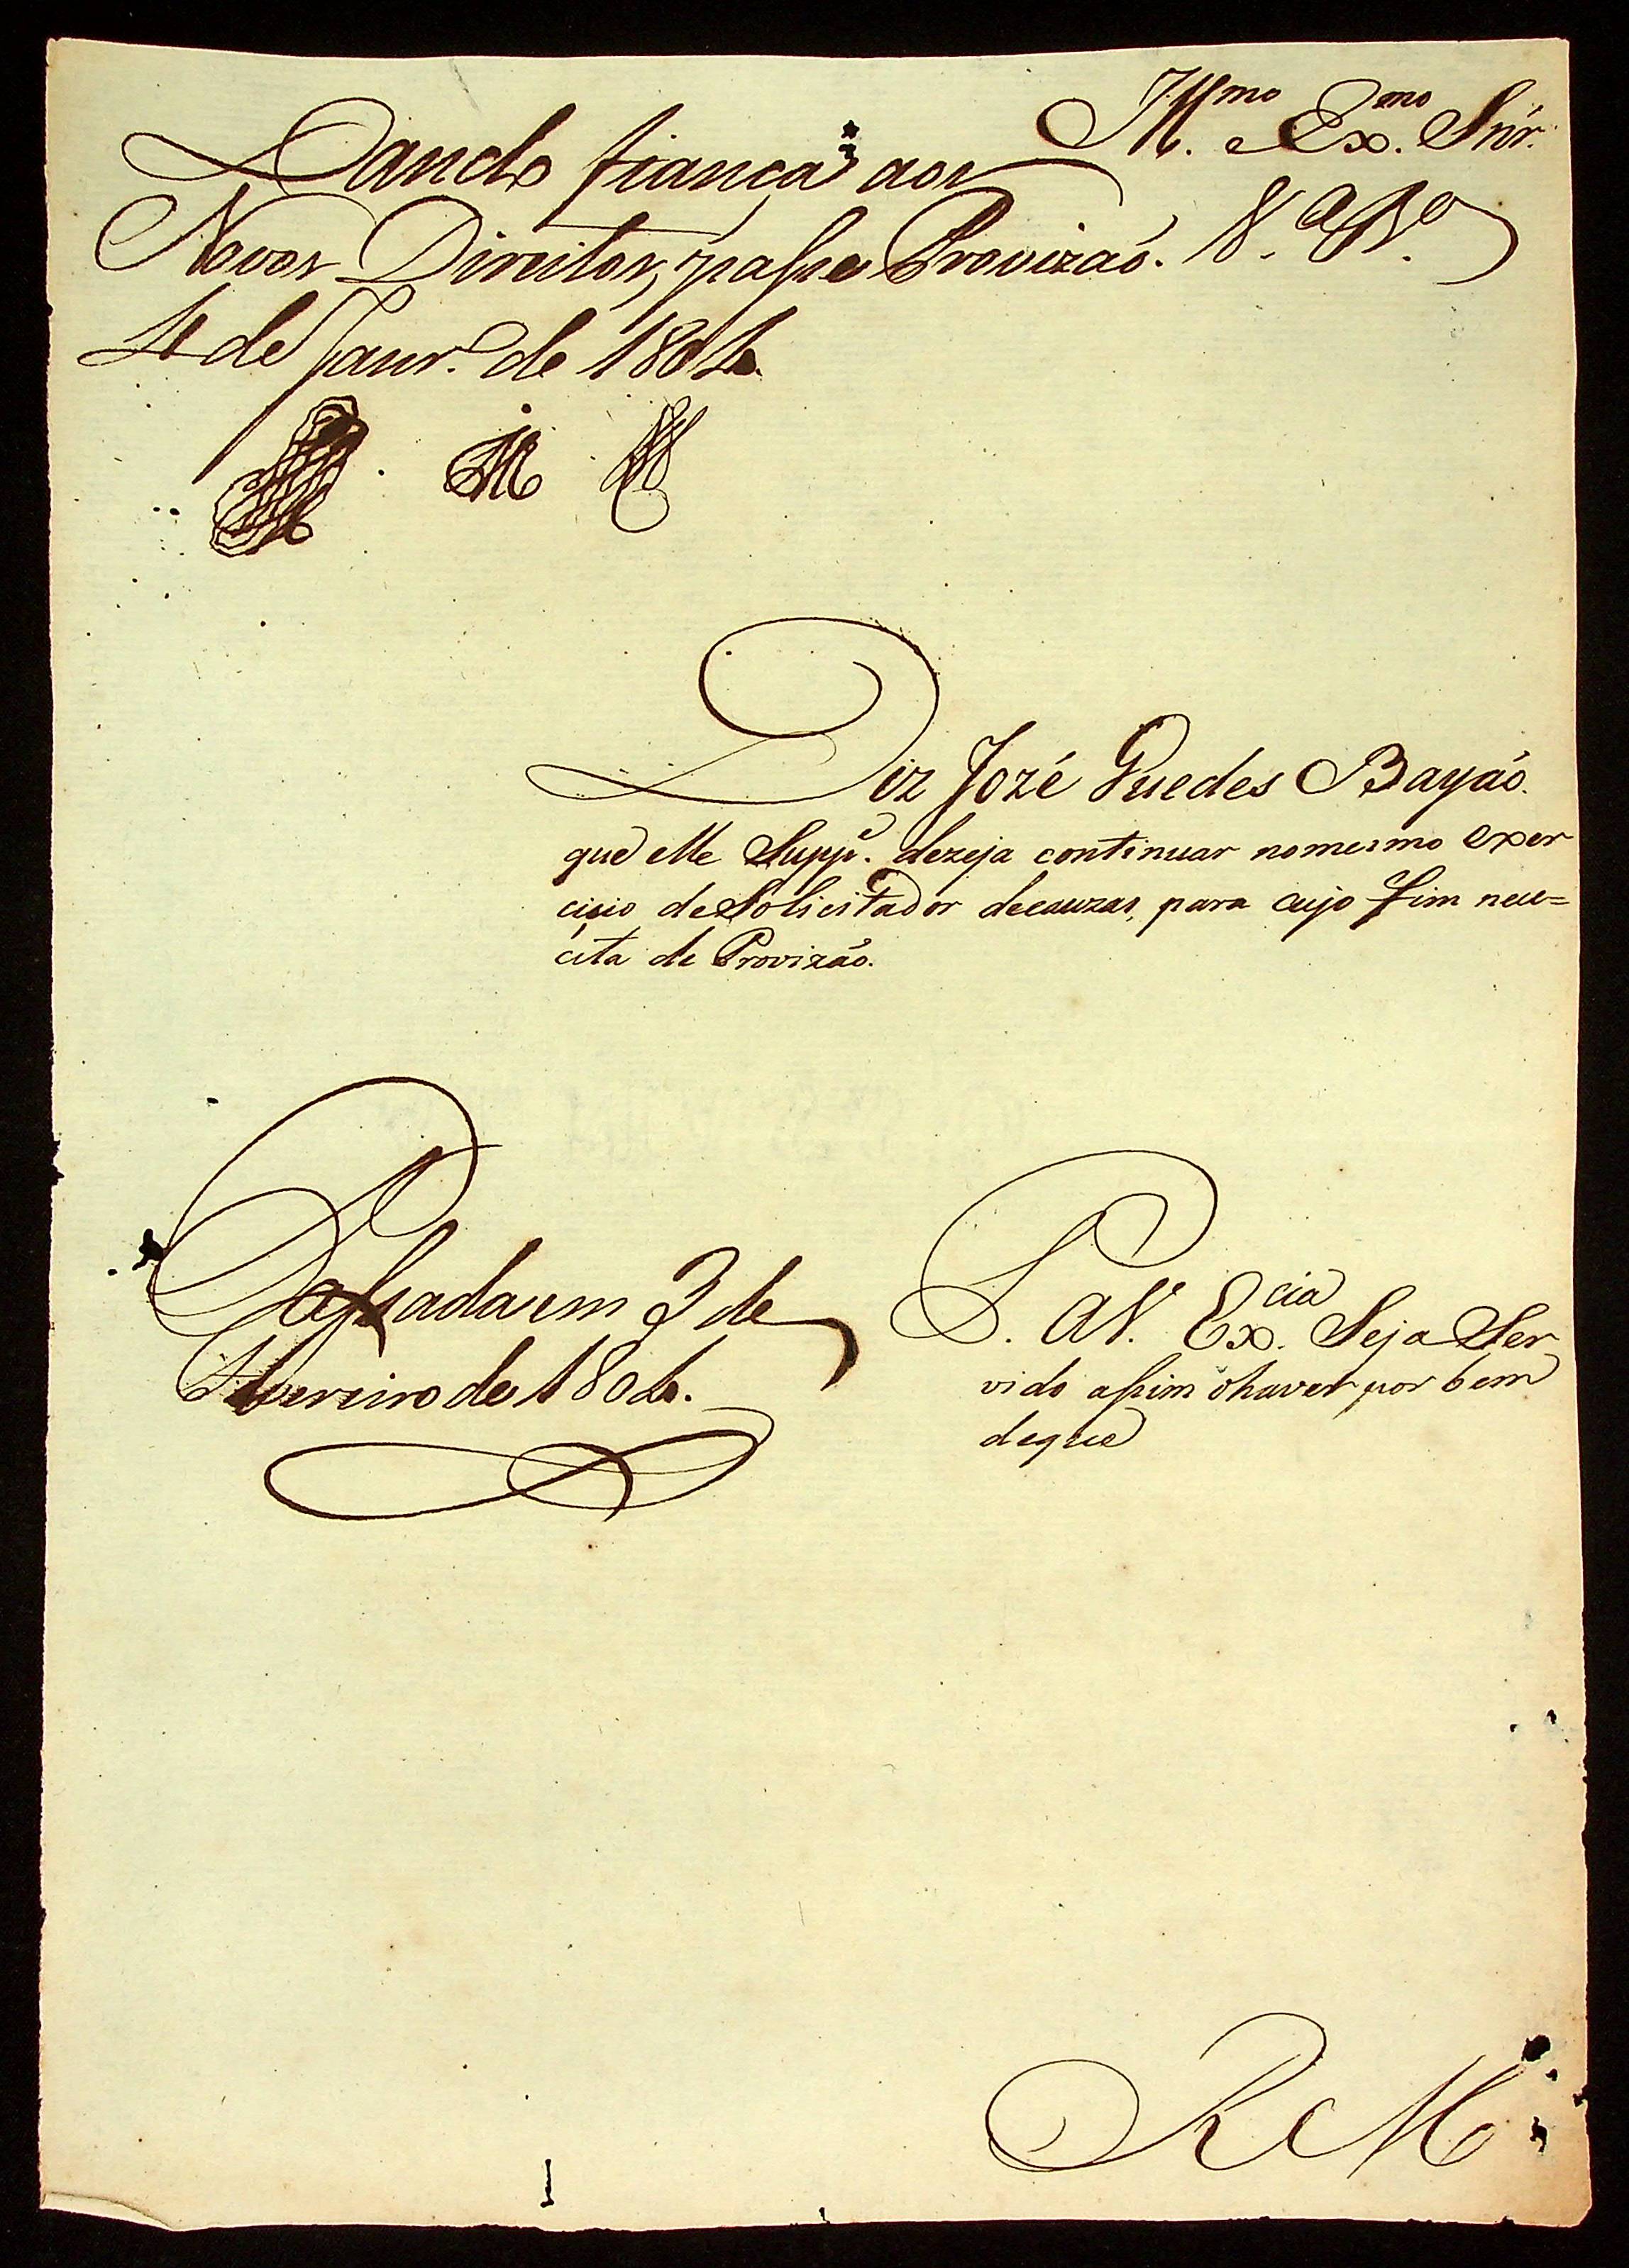 Illmo e Exmo Snr.
Dando fiança aos
Novos Direitos, passe Provizaó. Va Ra
4 de Janro de 1804
Diz Jozé Guedes Bayaõ.
que elle Suppe. dezeja continuar nomesmo exer
cicio deSolicitador decauzas, para cujo fim nece=
cita de Provizaõ.
Passada em 3 de
Fevereiro de 1804.
P. a V. Excia Seja Ser
vido assim ohaver por bem
deque
R M